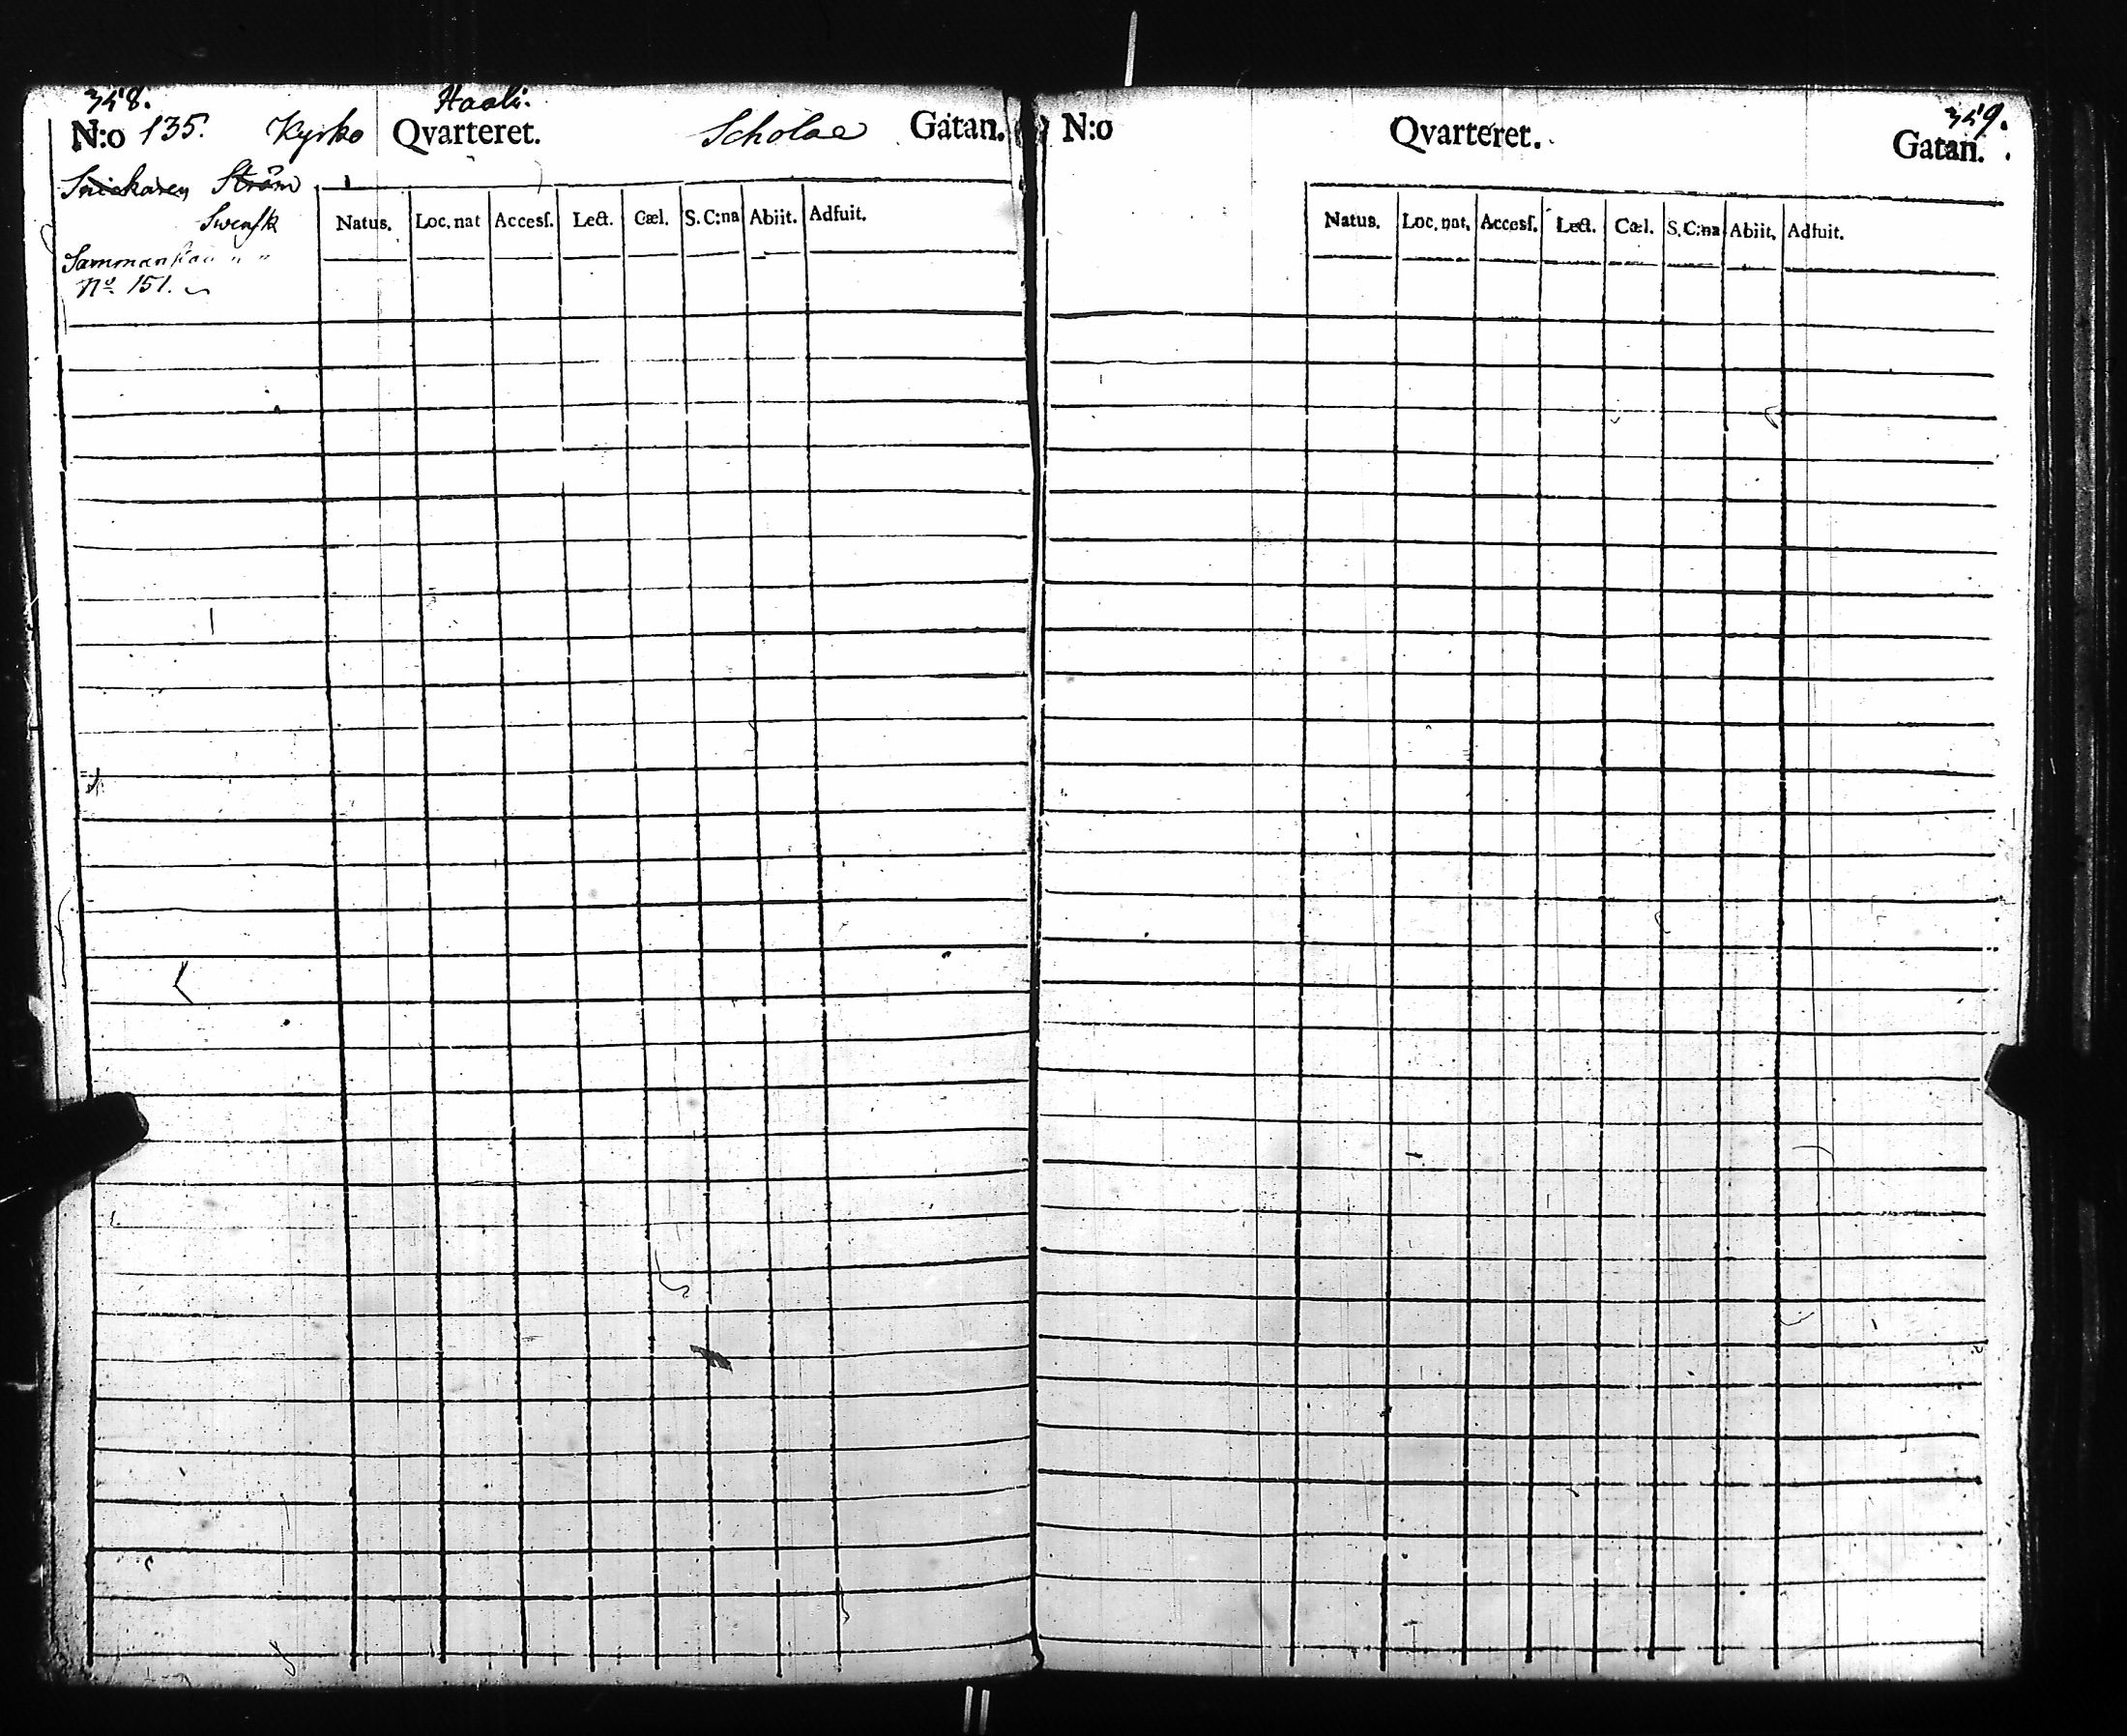 348.
N:o 135. Kyrko Qvarteret. Scholae Gatan.
Snickaren Ström
Swensk
Natus. Loc. nat Accesſ. Lect. Cæl. S. C:na Abiit. Adfuit.
No 151.
349.
N:o Qvarteret. Gatan.
Natus. Loc. nat. Accesſ. Lect. Cæl. S. C:na Abiit. Adfuit.